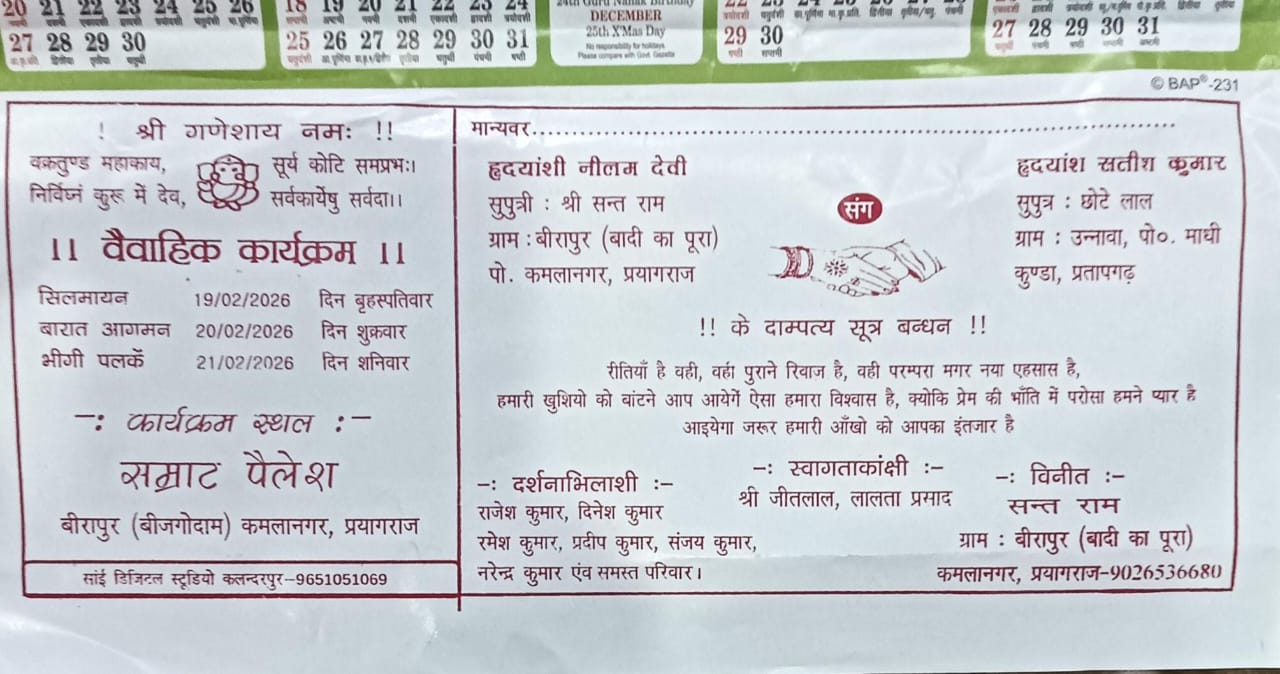 20 21 22 23 24 25 26
27 28 29 30
18 19 20 21 22 23 24
25 26 27 28 29 30 31
DECEMBER
25th X'Mas Day
No responsibility for holidays
Please compare with Govt. Gazette
29 30
27 28 29 30 31
© BAP®-231
! श्री गणेशाय नमः !!
वक्रतुण्ड महाकाय, सूर्य कोटि समप्रभः।
निर्विघ्नं कुरू में देव, सर्वकार्येषु सर्वदा।।
।। वैवाहिक कार्यक्रम ।।
सिलमायन 19/02/2026 दिन बृहस्पतिवार
बारात आगमन 20/02/2026 दिन शुक्रवार
भीगी पलकें 21/02/2026 दिन शनिवार
-: कार्यक्रम स्थल :-
सम्राट पैलेश
बीरापुर (बीजगोदाम) कमलानगर, प्रयागराज
सांई डिजिटल स्टूडियो कलन्दरपुर-9651051069
मान्यवर........................................................................
हृदयांशी नीलम देवी
सुपुत्री : श्री सन्त राम
ग्राम : बीरापुर (बादी का पूरा)
पो. कमलानगर, प्रयागराज
संग
हृदयांश सतीश कुमार
सुपुत्र : छोटे लाल
ग्राम : उन्नावा, पो०. माधी
कुण्डा, प्रतापगढ़
!! के दाम्पत्य सूत्र बन्धन !!
रीतियाँ है वही, वही पुराने रिवाज़ है, वही परम्परा मगर नया एहसास है,
हमारी खुशियो को बांटने आप आयेगें ऐसा हमारा विश्वास है, क्योकि प्रेम की भाँति में परोसा हमने प्यार है
आइयेगा जरूर हमारी आँखो को आपका इंतजार है
-: दर्शनाभिलाशी :-
राजेश कुमार, दिनेश कुमार
रमेश कुमार, प्रदीप कुमार, संजय कुमार,
नरेन्द्र कुमार एंव समस्त परिवार।
-: स्वागताकांक्षी :-
श्री जीतलाल, लालता प्रसाद
-: विनीत :-
सन्त राम
ग्राम : बीरापुर (बादी का पूरा)
कमलानगर, प्रयागराज-9026536680